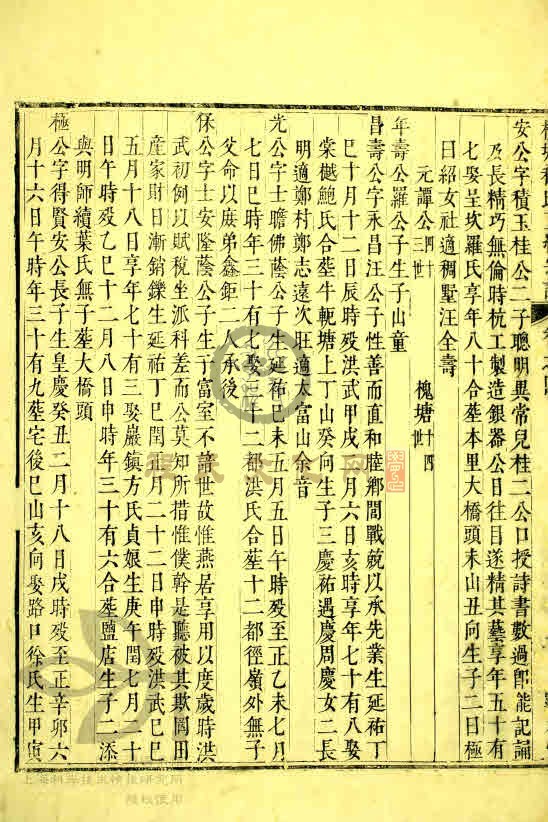 安公字積玉桂公二子聰明異常兒桂二公口授詩書數過卽能記誦
及長精巧無倫時杭工製造銀器公日往目遂精其藝享年五十有
七娶呈坎羅氏享年八十合塟本里大橋頭未山丑向生子二曰極
曰紹女社適稠墅汪全壽
元譚公四十三世 槐塘十四世
年壽公羅公子生子山童
昌壽公字永昌汪公子性善而直和睦鄉閭戰兢以承先業生延祐丁
巳十月十二日辰時歿洪武甲戌十月六日亥時享年七十有八娶
棠樾鮑氏合塟牛軛塘上丁山癸向生子三慶祐遇慶周慶女二長
明適鄭村鄭志遠次旺適太富山余音
光公字士瞻佛蔭公子生延祐巳未五月五日午時歿至正乙未七月
七日巳時年三十有七娶三十二都洪氏合塟十二都徑嶺外無子
父命以庶弟鑫鉅二人承後
保公字士安隆蔭公子生富室不諳世故惟燕居享用以度歲時洪
武初例以賦稅坐派科差而公莫知所措惟僕幹是聽被其欺罔田
産家財日漸銷鑠生延祐丁巳閏正月二十二日申時歿洪武巳巳
五月十八日享年七十有三娶巖鎮方氏貞娘生庚午閏七月二十
日午時歿乙巳十二月八日午時年三十有六合塟鹽店生子二添
與明師續葉氏無子塟大橋頭
極公字得賢安公長子生皇慶癸丑二月十八日戌時歿至正辛卯六
月十六日午時年三十有九塟宅後巳山亥向娶路口徐氏生甲寅
上海科學技術情報研究所
授权使用